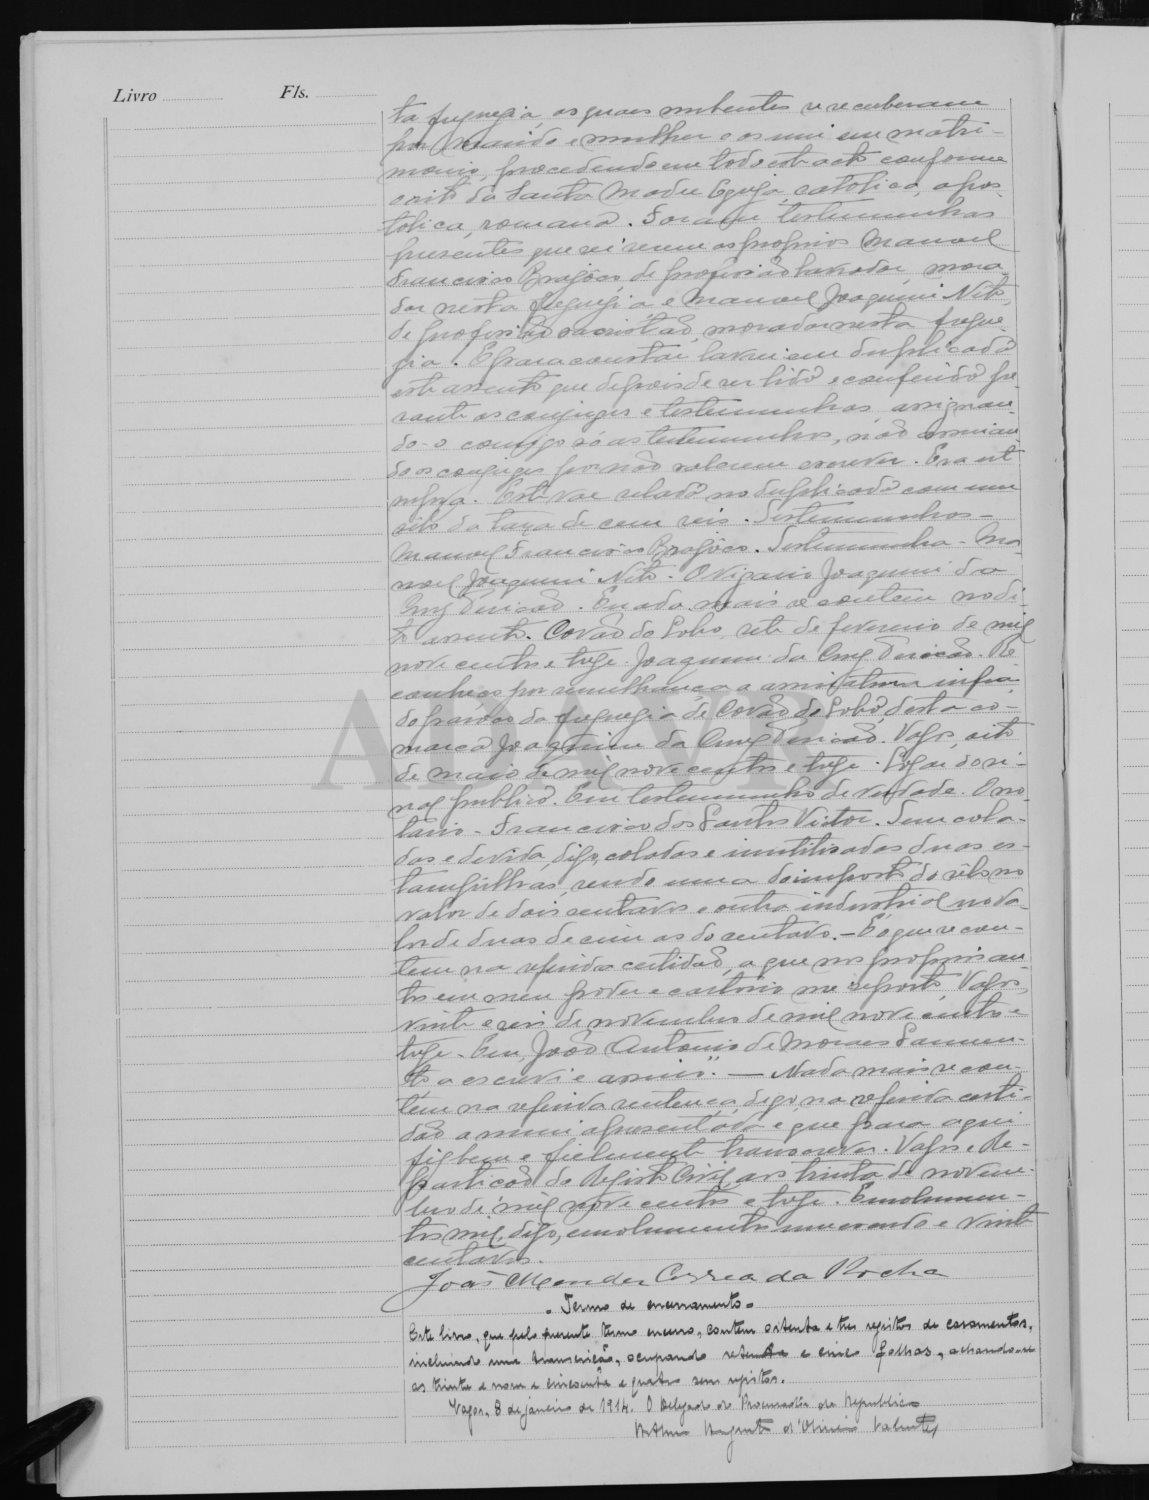 Livro Fls.
ta freguezia, os quaes nubentes se receberam
por marido e mulher e os uni em matri-
monio, procedendo em todo este acto conforme
o rito da Santa Madre Egreja, catolica, apos-
tolica, romana. Foram testemunhas
presentes que sei serem os proprios Manoel
Francisco Brajões, de profissão lavrador, mora-
dor nesta freguezia e Manoel Joaquim Neto,
de profissão sacristão, morador nesta fregue-
zia. E para constar lavrei em duplicado
este assento que depois de ser lido e conferido pe-
rante os conjuges e testemunhas, assignan-
do-o comigo só as testemunhas, não assinan-
do os conjuges por não saberem escrever. Era ut
supra. Este vae selado no duplicado com um
selo da taxa de cem reis. Testemunhas -
Manoel Francisco Brajões. Testemunha - Ma-
noel Joaquim Neto. O Vigario Joaquim da
Conceição. E nada mais se contem no di-
to assento. Covão do Lobo, sete de fevereiro de mil
nove centos e treze. Joaquim da Conceição. Re
conheço por semelhança a assinatura infra
do paroco da freguezia de Covão do Lobo, desta co-
marca Joaquim da Conceição. Vagos, oito
de maio de mil nove centos e treze. Logar do si-
nal publico. Em testemunho de verdade. O no-
tario - Francisco dos Santos Victor. Tem cola-
das e devida, digo, coladas e inutilisadas duas es-
tampilhas, sendo uma do imposto do selo no
valor de dois centavos e outra industrial no va-
lor de duas decimas do centavo. - É o que se con-
tem na referida certidão, a que nos proprios au-
tos em meu poder e cartorio me reporto, Vagos,
vinte e seis de novembro de mil nove centos e
treze. Eu, João Antonio de Moraes Sarmen-
to a escrevi e assino". — Nada mais se con-
tem na referida sentença, digo, na referida certi-
dão a mim apresentada e que para aqui
fiz bem e fielmente transcrever. Vagos e Re-
partição do Registo Civil, aos trinta de novem-
bro de mil nove centos e treze. Emolumen-
tos mil, digo, emolumentos um escudo e vinte
centavos.
João Mendes Correa da Rocha
Termo de encerramento.
Este livro, que pelo presente termo encerro, contem oitenta e tres registos de casamentos,
incluindo uma transcrição, ocupando setenta e cinco folhas, achando-se
as trinta e nove e cincoenta e quatro sem registos.
Vagos, 8 de janeiro de 1914. O Delegado do Procurador da Republica
d'Oliveira Valente
ADAVR